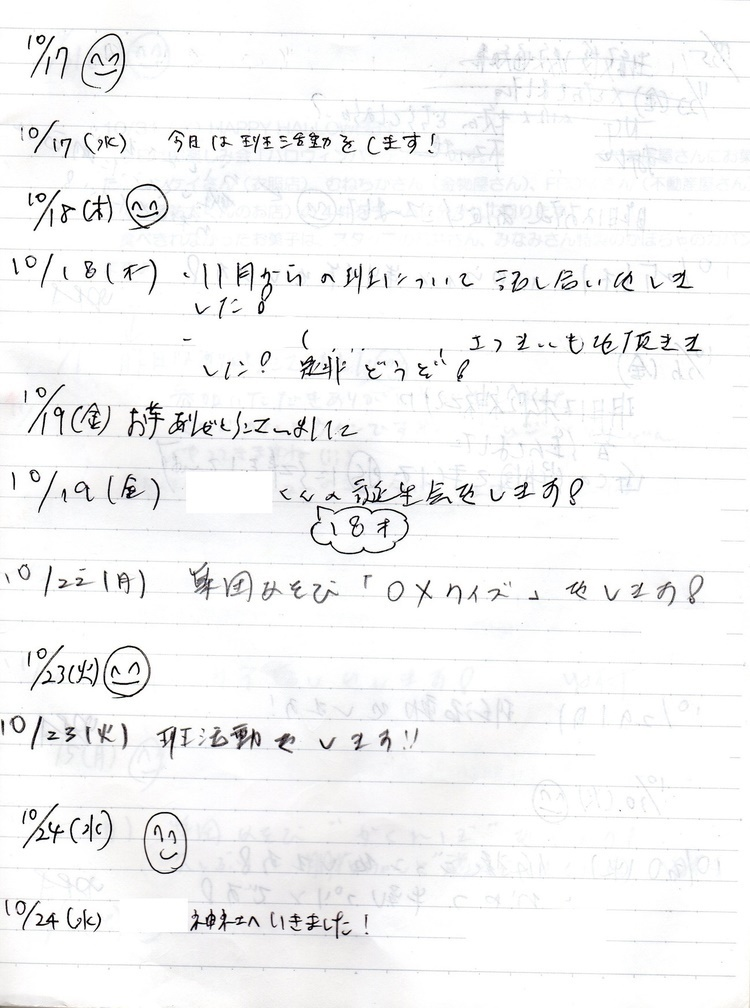 10/17
10/17(水) 今日は班活動をします!
10/18(木)
10/18(木) ・11月からの班について話し合いをしま
した!
- さつまいもを頂きま
した! 是非どうぞ!
10/19(金) お芋ありがとうございました
10/19(金) くんの誕生会をします!
18才
10/22(月) 集団あそび「OXクイズ」をします!
10/23(火)
10/23(火) 班活動をします!!
10/24(水)
10/24(水) 神社へいきました!